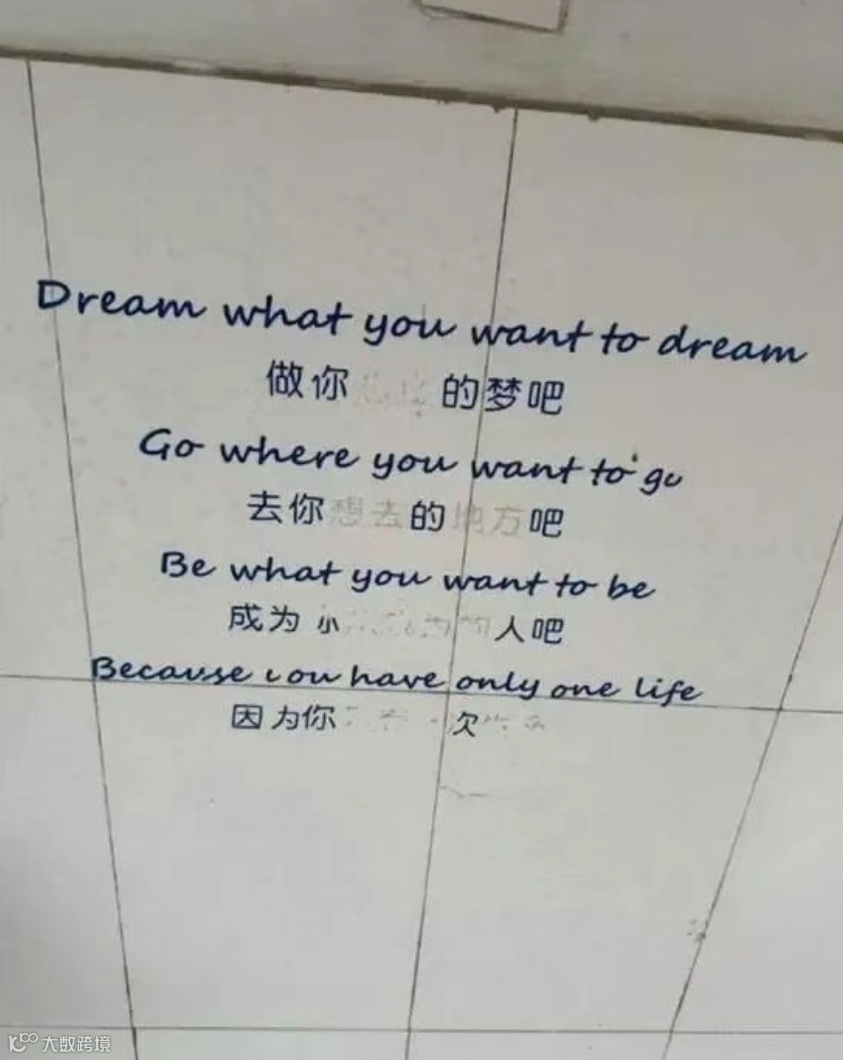 Dream what you want to dream
做你 的梦吧
Go where you want to go
去你想去的地方吧
Be what you want to be
成为 人吧
Because you have only one life
因为你 次
大数跨境